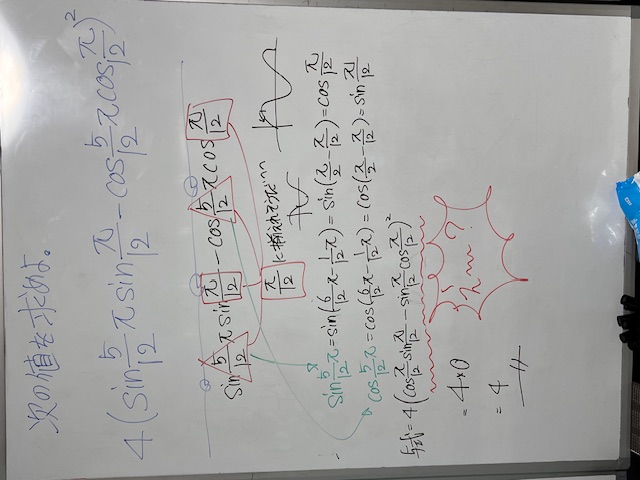 次の値を求めよ。
4(sin 5/12 π sin π/12 - cos 5/12 π cos π/12)²
sin 5/12 π sin π/12 - cos 5/12 π cos π/12
π/12 に揃えて
sin 5/12 π = sin(6/12 π - 1/12 π) = sin(π/2 - π/12) = cos π/12
cos 5/12 π = cos(6/12 π - 1/12 π) = cos(π/2 - π/12) = sin π/12
与式 = 4(cos π/12 sin π/12 - sin π/12 cos π/12)²
= 4×0
= 4